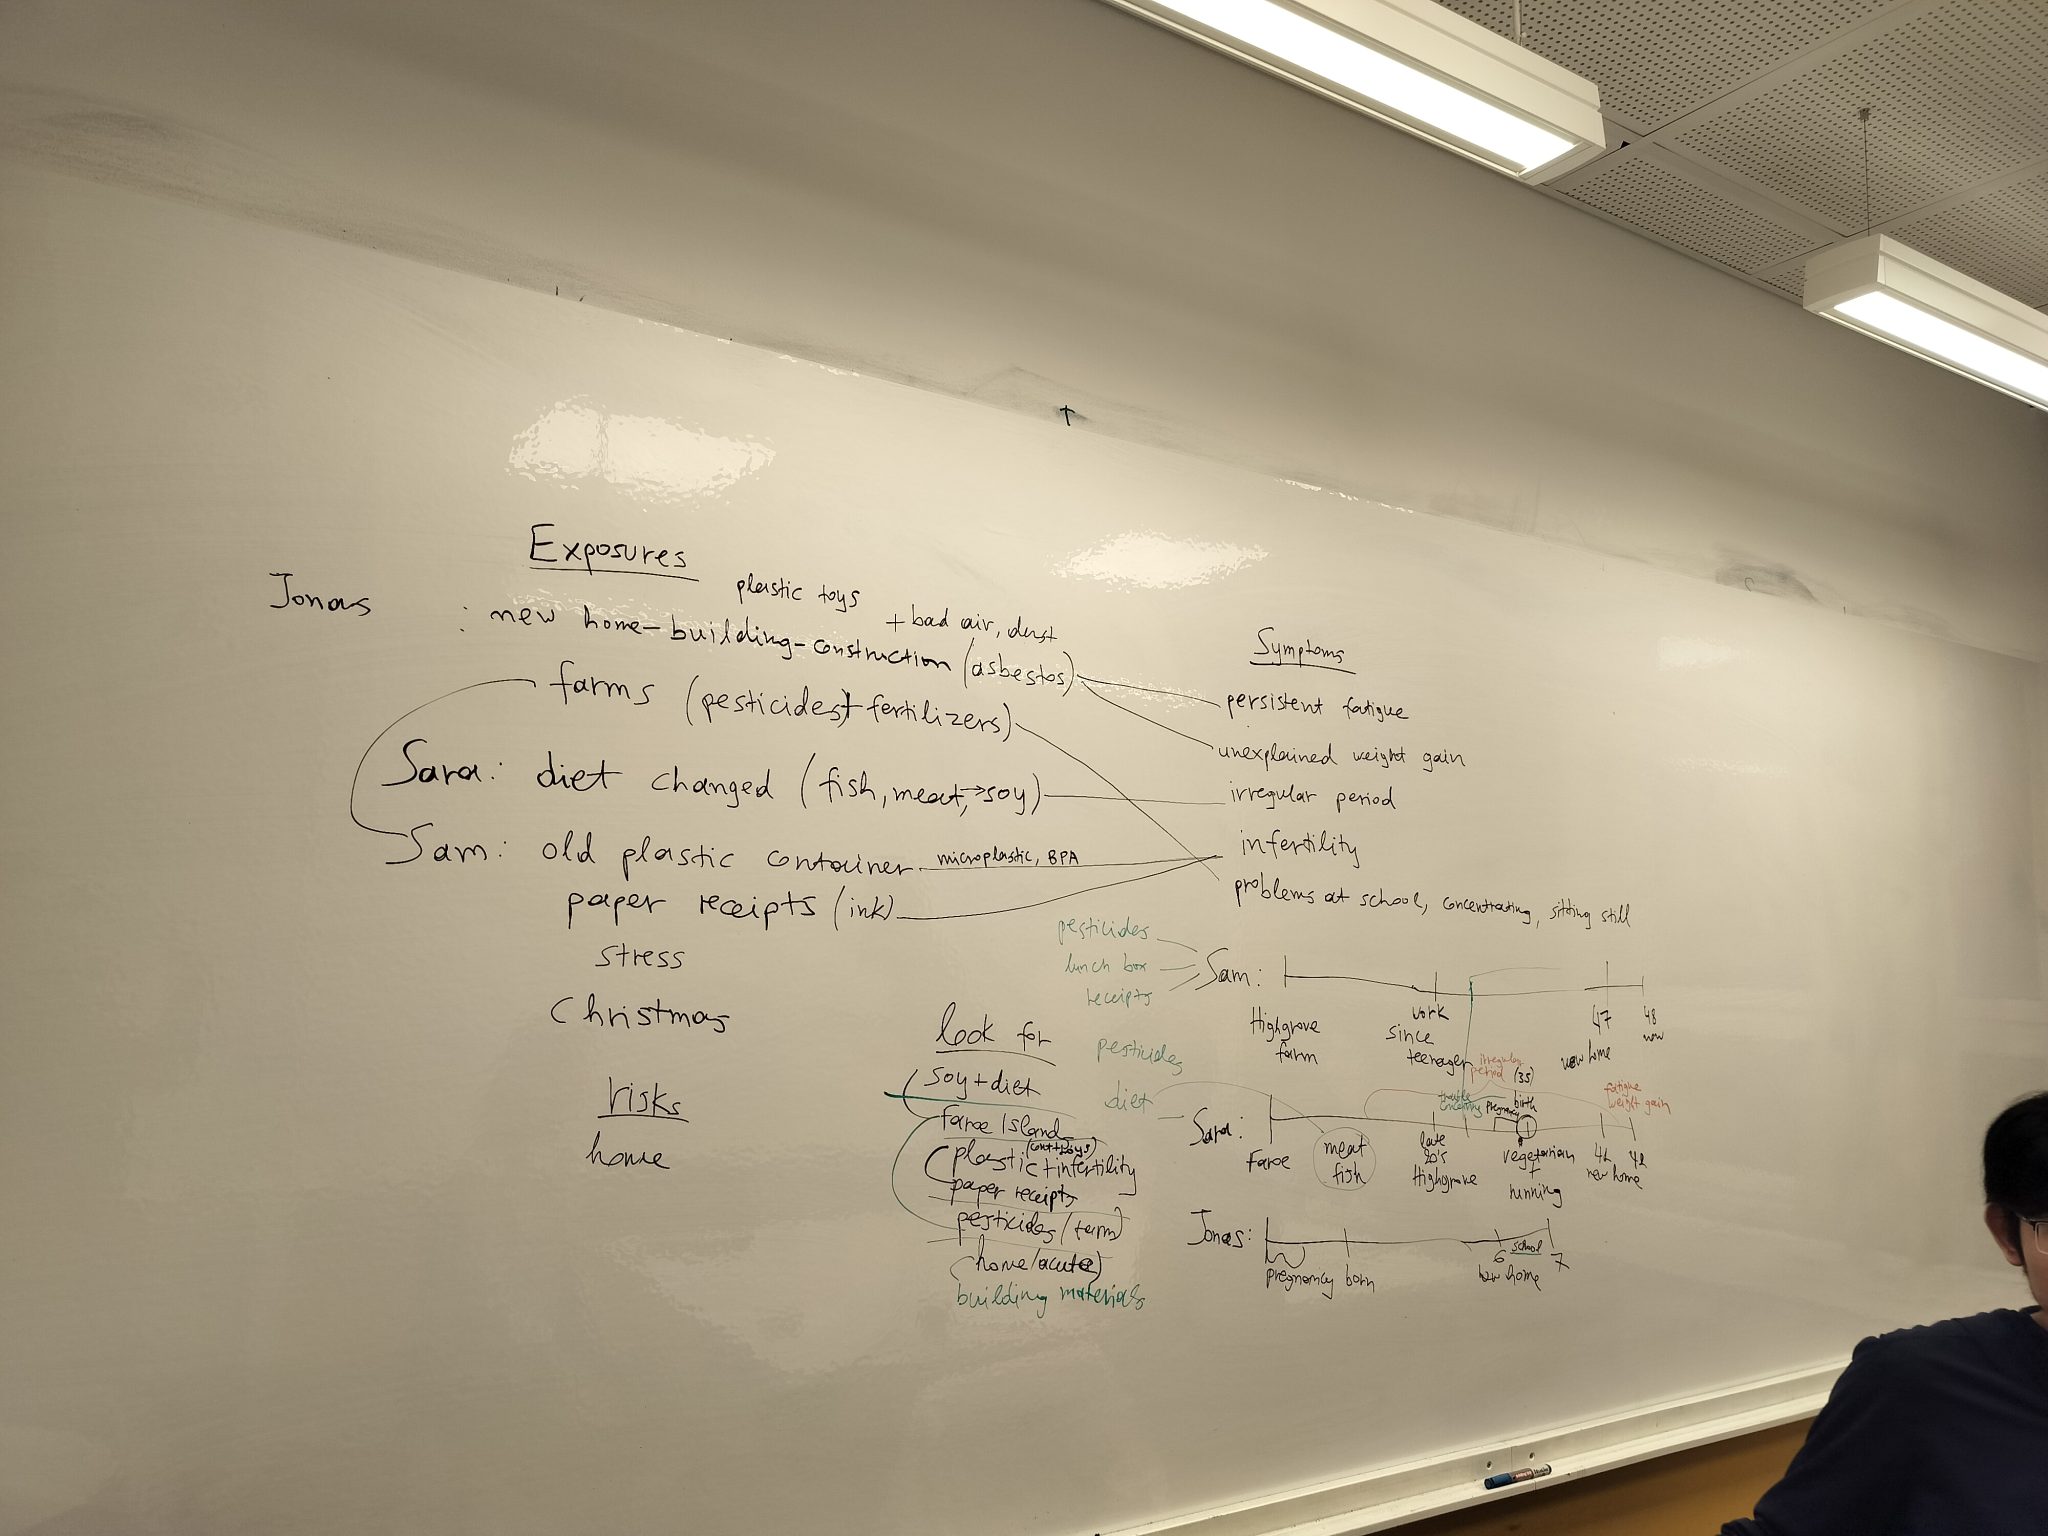 Exposures
plastic toys
Jonas : new home-building-construction (asbestos)
+ bad air, dust
farms (pesticides + fertilizers)
Sara: diet changed (fish, meat, → soy)
Sam: old plastic container microplastic, BPA
paper receipts (ink)
stress
Christmas
risks
home
Symptoms
persistent fatigue
unexplained weight gain
irregular period
infertility
problems at school, concentrating, sitting still
look for
soy + diet
faroe Island
plastic + infertility
paper receipts
pesticides (farm)
home (acute)
building materials
pesticides
lunch box
receipts
Sam:
Highgrove farm
work since teenager
47
new home
48
now
pesticides
diet
Sara:
Faroe
meat
fish
late 20's
Highgrove
irregular period (35)
pregnancy
birth
vegetarian
+
running
fatigue
weight gain
new home
Jonas:
pregnancy born
6 school 7
new home